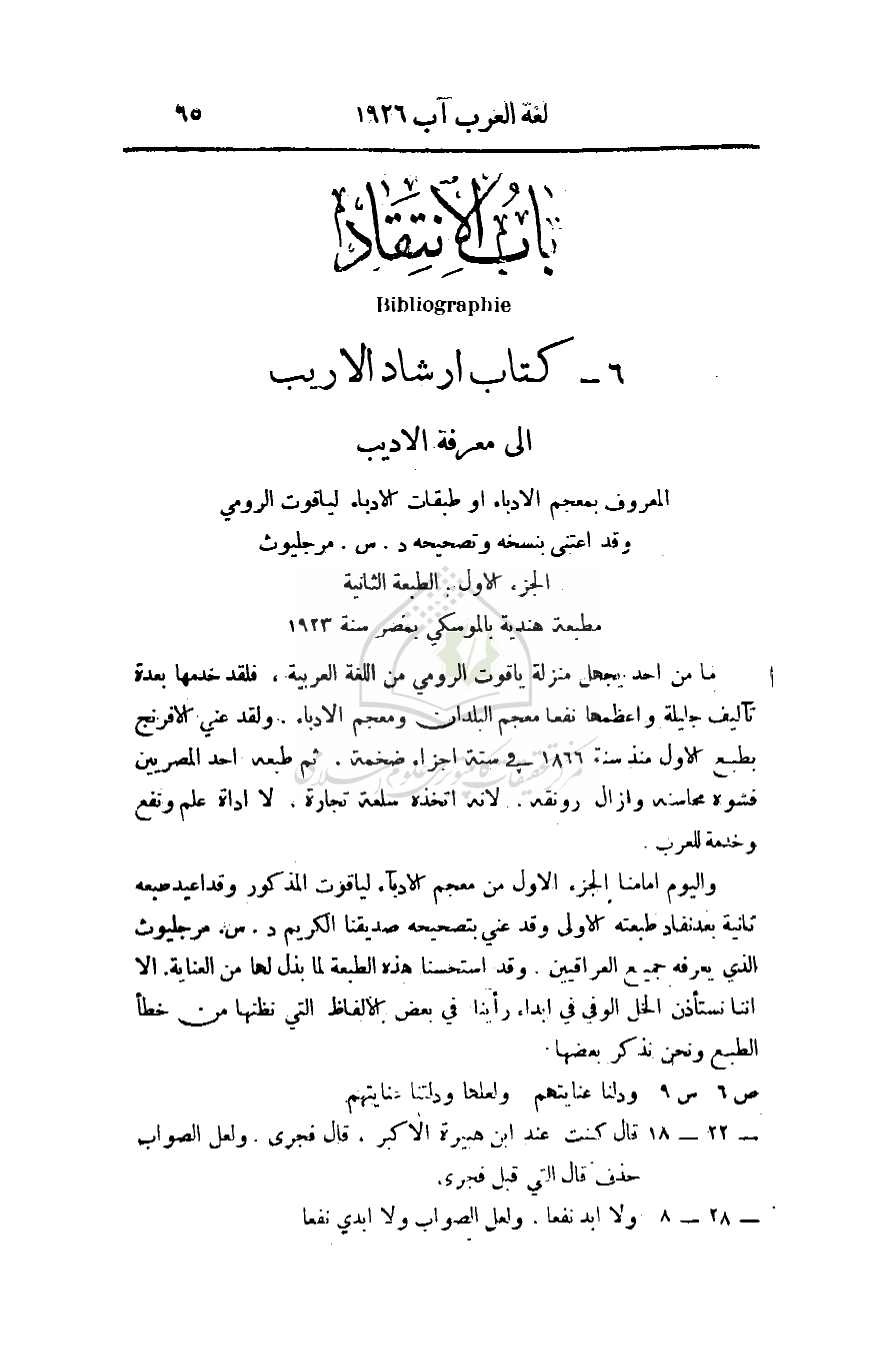 لغة العرب آب ١٩٢٦ ٦٥
باب الانتقاد
Bibliographie
٦ ـ كتاب ارشاد الاريب
الى معرفة الاديب
المعروف بمعجم الادباء او طبقات الادباء لياقوت الرومي
وقد اعتنى بنسخه وتصحيحه د . س . مرجليوث
الجزء الاول . الطبعة الثانية
مطبعة هندية بالموسكي بمصر سنة ١٩٢٣
ما من احد يجهل منزلة ياقوت الرومي من اللغة العربية ، فلقد خدمها بعدة
تآليف جليلة واعظمها نفعا معجم البلدان ومعجم الادباء . ولقد عني الافرنج
بطبع الاول منذ سنة ١٨٦٦ في ستة اجزاء ضخمة . ثم طبعه احد المصريين
فشوه محاسنه وازال رونقه . لانه اتخذه سلعة تجارة . لا اداة علم ونفع
وخدمة للعرب .
واليوم امامنا الجزء الاول من معجم الادبآء لياقوت المذكور وقد اعيد طبعه
ثانية بعد نفاد طبعته الاولى وقد عني بتصحيحه صديقنا الكريم د . س. مرجليوث
الذي يعرفه جميع العراقيين . وقد استحسنا هذه الطبعة لما بذل لها من العناية. الا
اننا نستأذن الخل الوفي في ابداء رأينا في بعض الالفاظ التي نظنها من خطأ
الطبع ونحن نذكر بعضها.
ص ٦ س ٩ ودلنا عنايتهم ولعلها ودلتنا عنايتهم
ـ ٢٢ ـ ١٨ قال كنت عند ابن هبيرة الاكبر . قال فجرى . ولعل الصواب
حذف قال التي قبل فجرى.
ـ ٢٨ ـ ٨ ولا ابد نفعا . ولعل الصواب ولا ابدي نفعا
مركز تحقيقات كامپيوتری علوم اسلامی